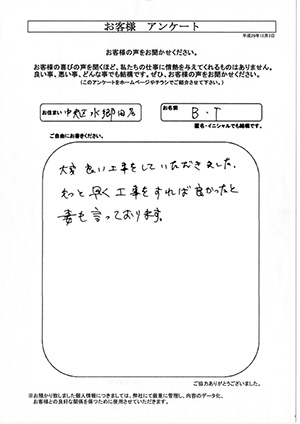 お客様 アンケート
平成29年10月3日
お客様の声をお聞かせください。
お客様の喜びの声を聞くほど、私たちの仕事に情熱を与えてくれるものはありません。
良い事、悪い事、どんな事でも結構です。ぜひ、お客様の声をお聞かせください。
(このアンケートをホームページやチラシでご紹介させて下さい。)
お住まい 中央区水郷田名
お名前 B・T
匿名・イニシャルでも結構です。
ご自由にお書きください。
大変良い工事をしていただきました。
もっと早く工事をすれば良かったと
妻も言っております。
ご協力ありがとうございました。
※お預かり致しました個人情報につきましては、弊社にて厳重に管理し、内容のデータ化、
お客様との良好な関係を保つために使用させていただきます。